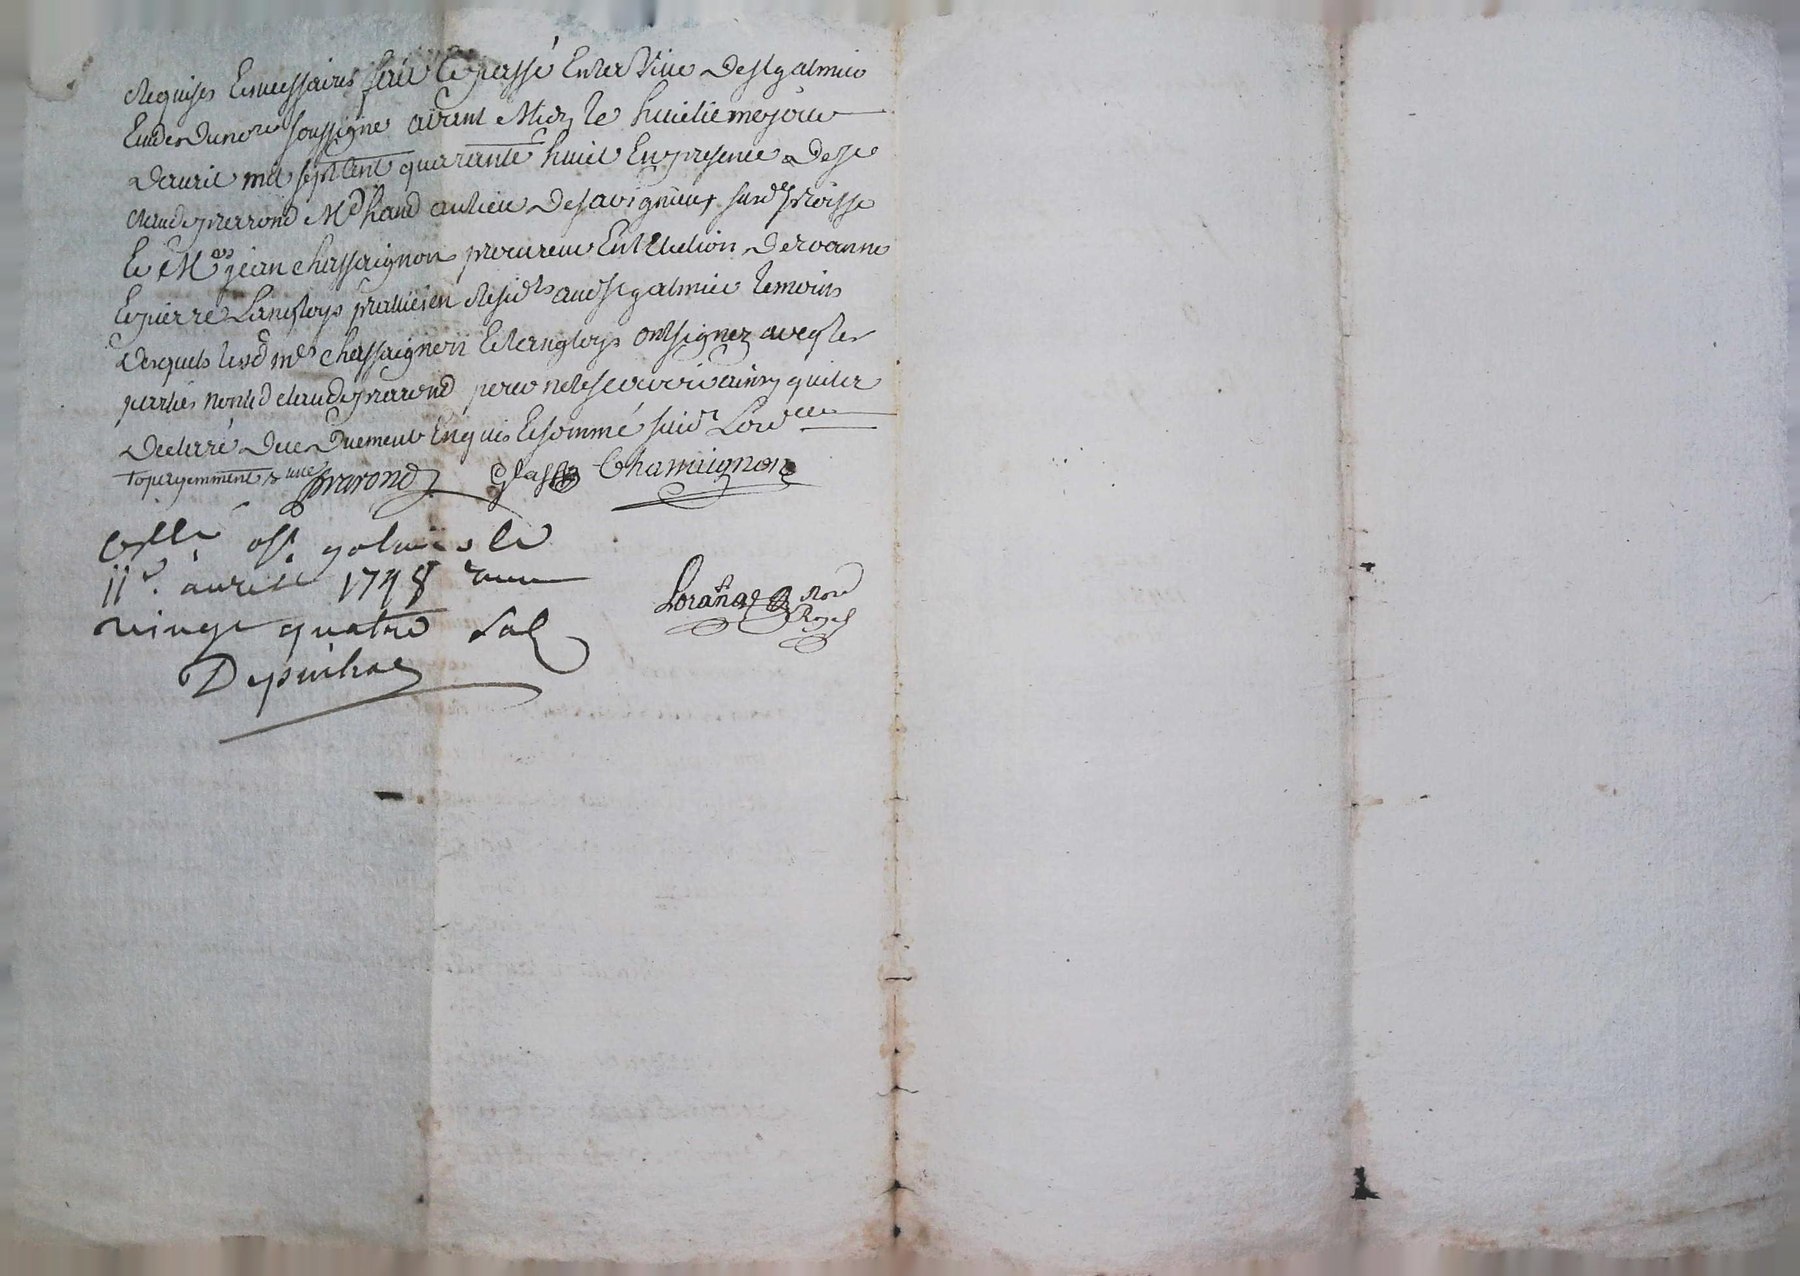 Requises Et necessaires fait et passé En la Ville de St galmier
Etude du no.re soussigné avant Midy le huitieme jour
d'avril mil sept cent quarante huit En presence de Sr
claude prarond Md chand au lieu de savigneux sur d. proisse
et Me jean chassaignon procureur En l'Election de roanne
Et pierre Langloys praticien Residts aud St galmier temoins
desquels lesd ms chassaignon Et langloys ont signez avec les
parties non led claude prarond pour ne le scavoir ainsy qu'il a
declaré de ce duement Enquis Et sommé suivt Lord.ce
prarond Chassaignon
Collé a St. galmier le
11e. avril 1748 recu
vingt quatre sols
Depuihac
Loranas Nore
Royal